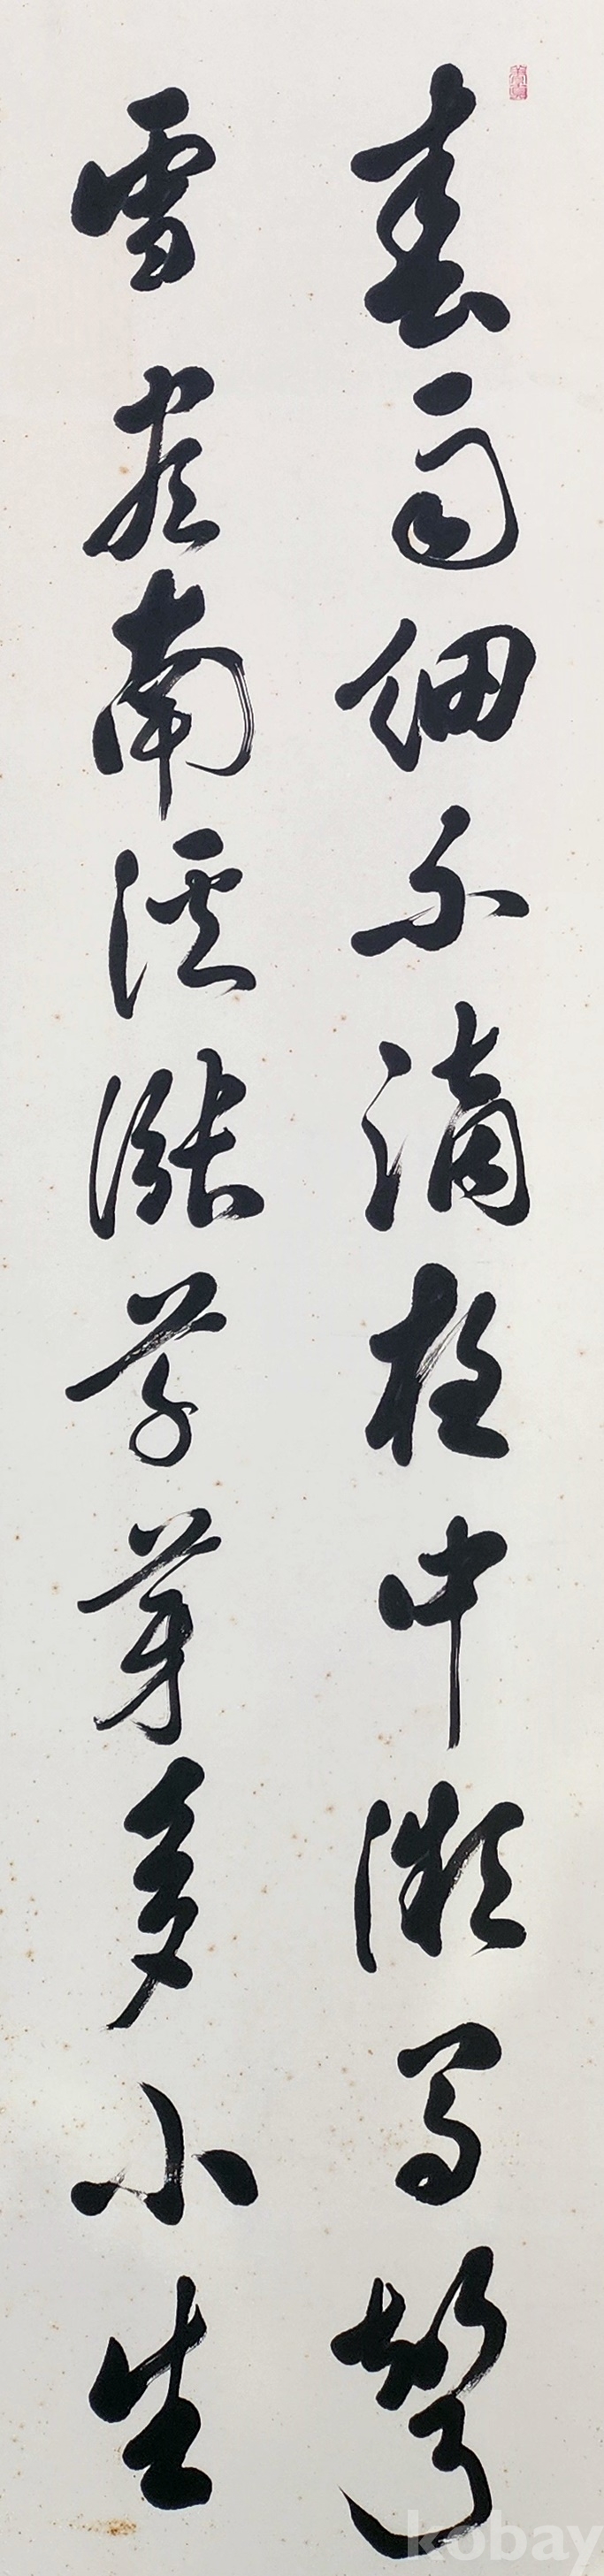 春雨細不滴夜中微有聲
雪盡南溪漲草芽多小生
kobay